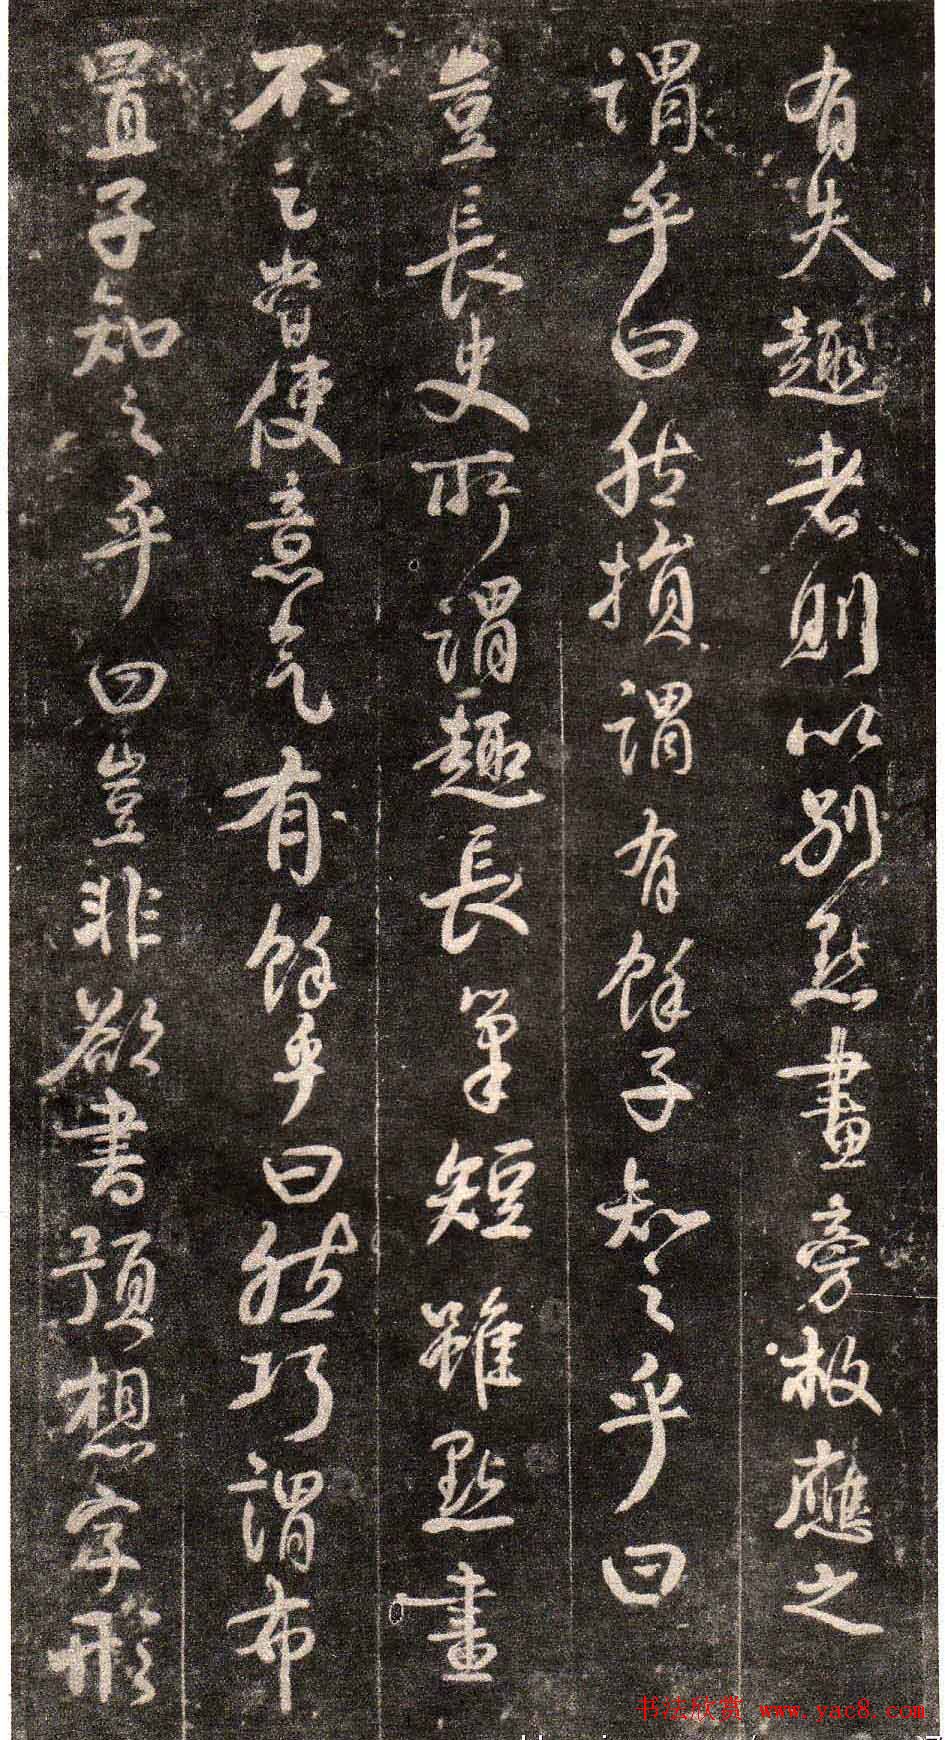 有失趣者則以别點畫旁救應之
謂乎曰然損謂有餘子知之乎曰
豈長史所謂趣長筆短雖點畫
不足常使意氣有餘乎曰然巧謂布
置子知之乎曰豈非欲書預想字形
书法欣赏 www.yac8.com